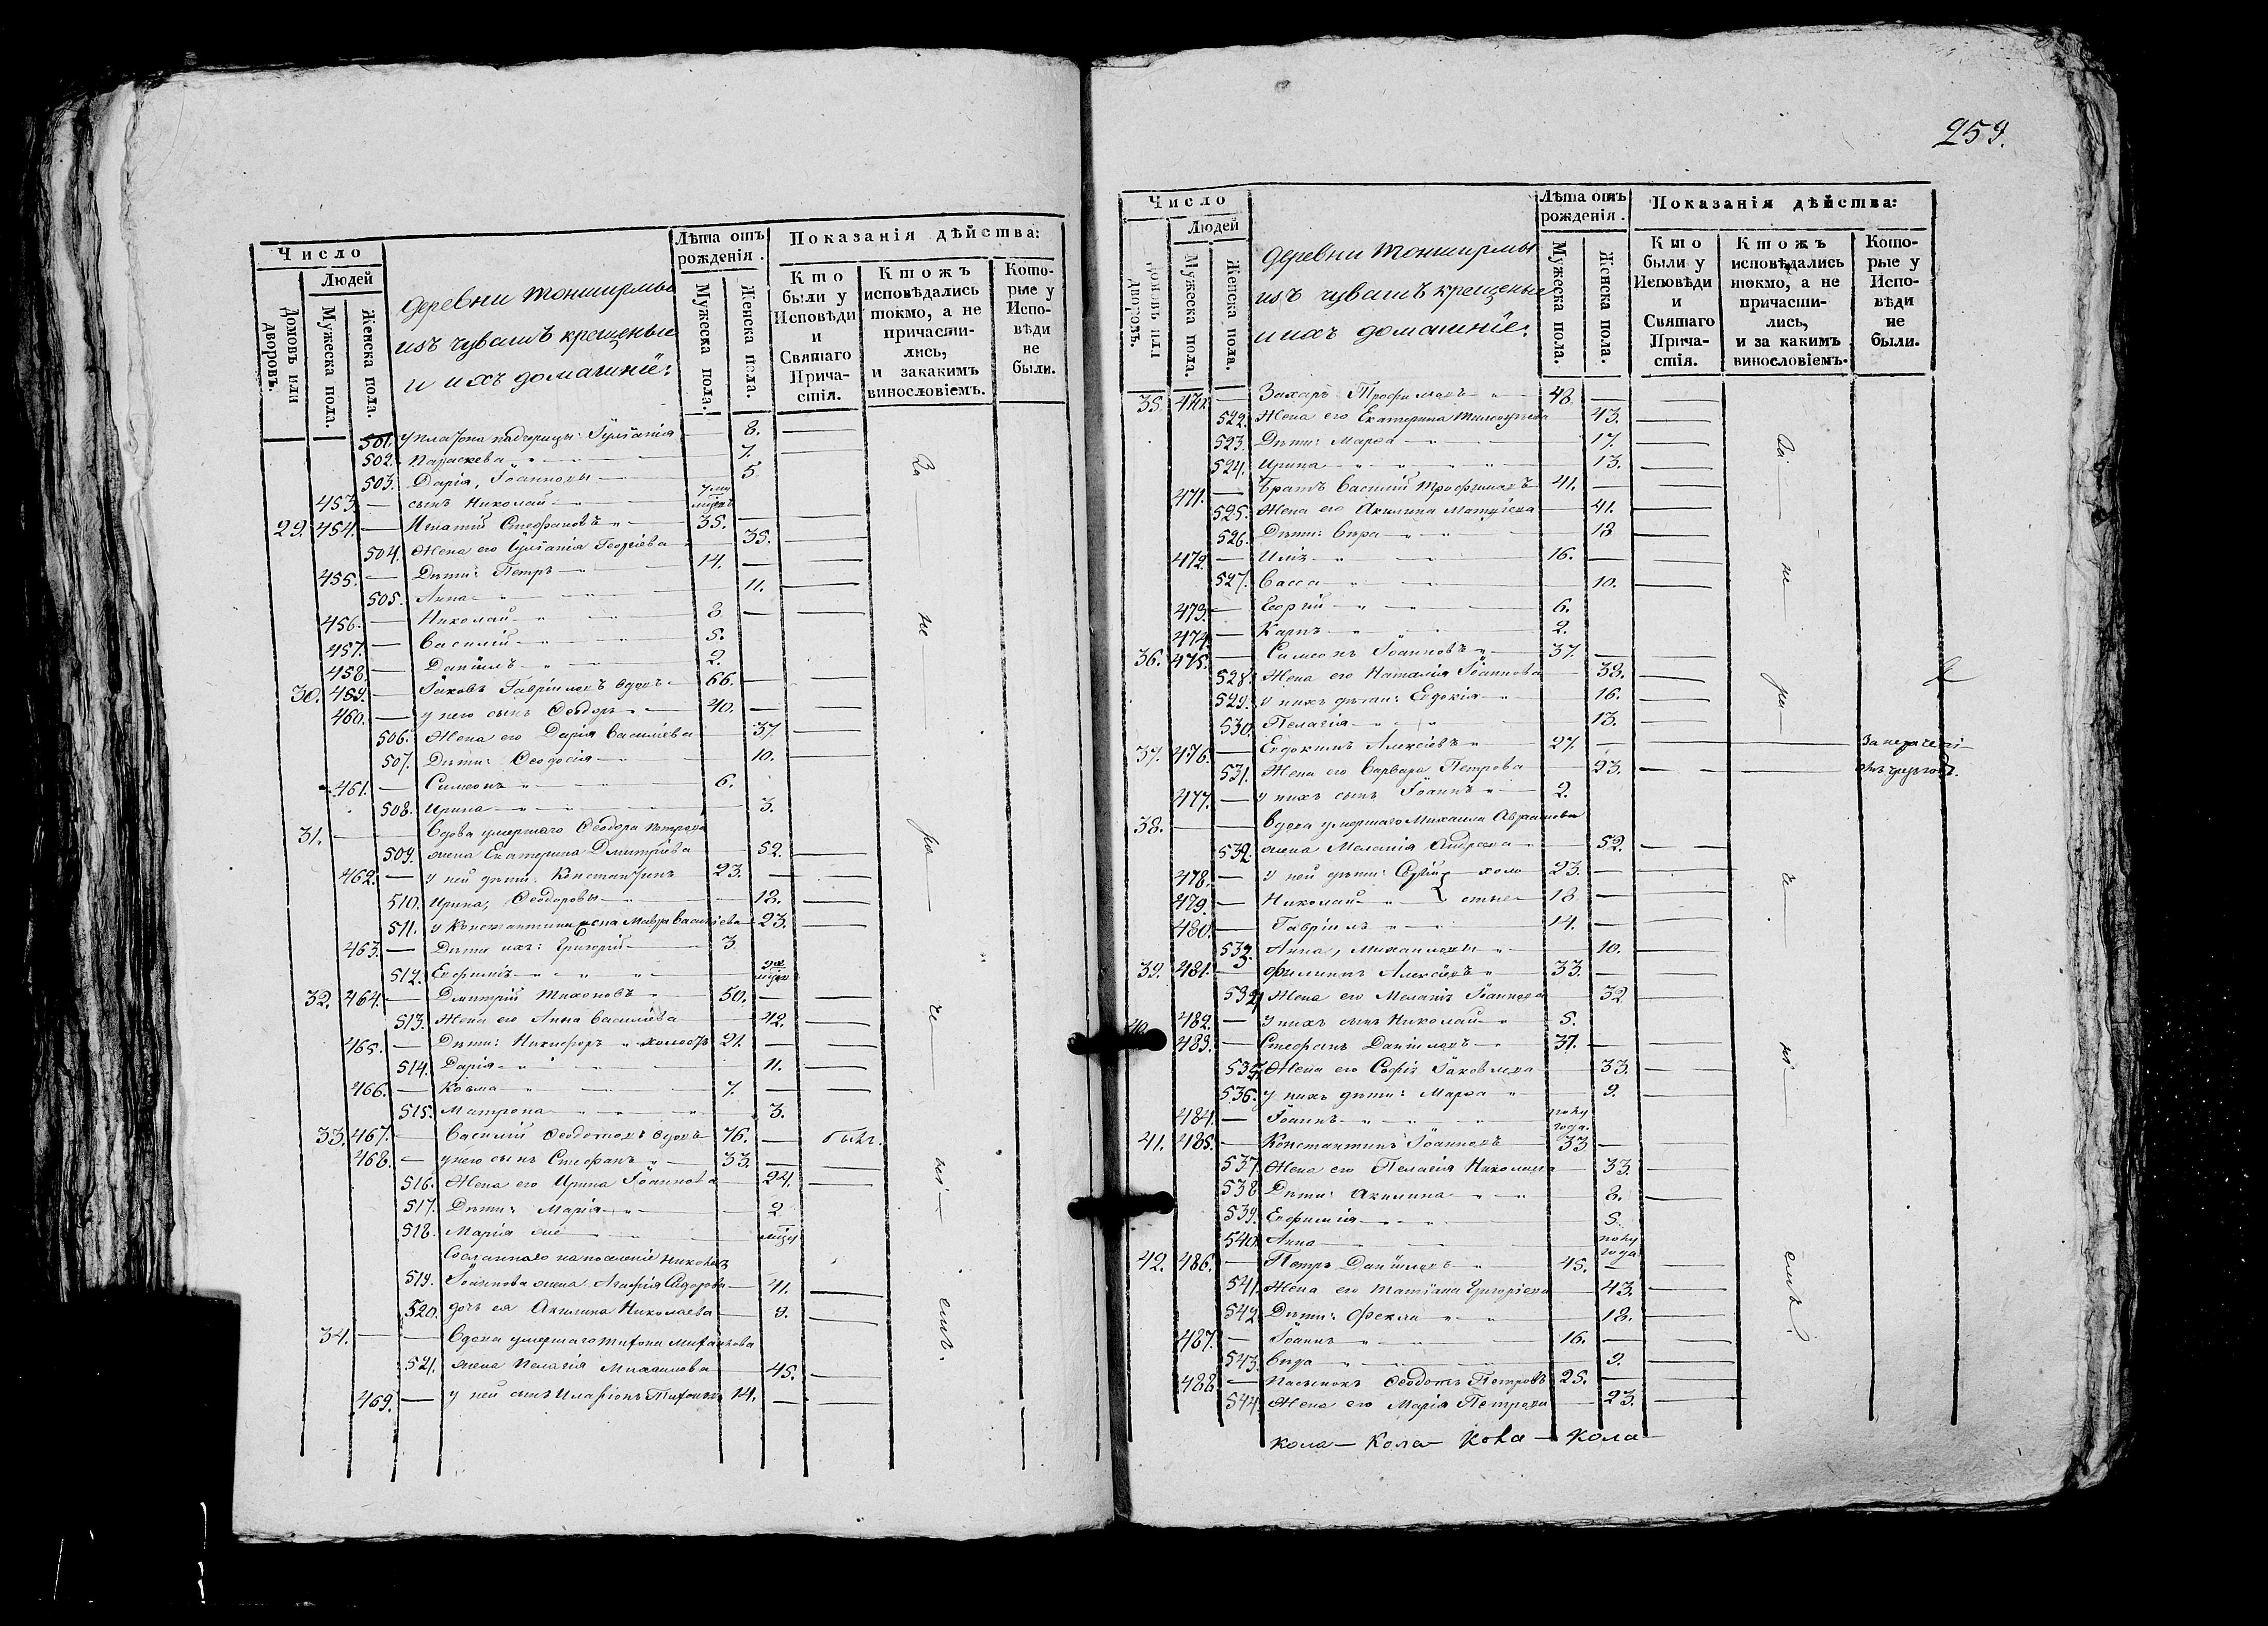 Число
Людей
Домовъ или дворовъ.
Мужеска пола.
Женска пола.
деревни Тонширмы
изъ чувашъ крещеные
и ихъ домашніе:
Лѣта отъ рожденія.
Мужеска пола.
Женска пола.
Показанія дѣйства:
Кто были у Исповѣди и Святаго Прича-стія.
Ктожъ исповѣдались токмо, а не причасти-лись, и закакимъ винословіемъ.
Кото-рые у Испо-вѣди не были.
501. у Платона падчерицы: Гулїанія 8.
502. Параскева 7.
503. Дарія, Іоанновы 5
453. сынъ Николай
29. 454. Игнатий Стефановъ 35.
504. Жена его Іулїанія Георгіева 35.
455. Дѣти: Петръ 14.
505. Анна 11.
456. Николай 8
457. Василій 5.
458. Даніилъ 2.
30. 459. Іаковъ Гавріиловъ вдовъ 66.
460. у него сынъ Ѳеодоръ 40.
506. Жена его Дарія Василіева 37
507. Дѣти: Ѳеодосія 10.
461. Симеонъ 6.
508. Ирина 3.
31. Вдова умершаго Ѳеодора Петрова
509. жена Екатерина Дмитріева 52.
462. у ней дѣти: Константинъ 23.
510. Ирина, Ѳеодоровы 18.
511. у Константина жена Мавра Василіева 23.
463. Дѣти ихъ: Григорій 3
512. Евфимія
32. 464. Дмитрій Тихоновъ 50.
513. Жена его Анна Василіева 42.
465. Дѣти: Никифоръ холостъ 21.
514. Дарія 11.
466. Козма 7.
515. Матрона 3.
33. 467. Василій Ѳеодотовъ вдовъ 76. былъ.
468. у него сынъ Стефанъ 33.
516. Жена его Ирина Іоаннова 24.
517. Дѣти: Марія 2
518. Марія же
Сосланнаго на поселеніе Николая
519. Іоаннова жена Агафія Сидорова 41.
520. дочь ея Акилина Николаева 9.
34. Вдова умершаго Тихона
521. жена Пелагія Михаилова 45.
469. у ней сынъ Иларіонъ Тихоновъ 14.
За не ра че ні емъ.
259.
Число
Людей
Домовъ или дворовъ.
Мужеска пола.
Женска пола.
деревни Тонширмы
изъ чувашъ крещеные
и ихъ домашніе:
Лѣта отъ рожденія.
Мужеска пола.
Женска пола.
Показанія дѣйства:
Кто были у Исповѣди и Святаго Прича-стія.
Ктожъ исповѣдались токмо, а не причасти-лись, и за какимъ винословіемъ.
Кото-рые у Испо-вѣди не были.
35. 470. Захаръ Трофимовъ 48.
522. Жена его Екатерина Тимоѳеева 43.
523. Дѣти: Марѳа 17.
524. Ирина 13.
471. Братъ Василій Трофимовъ 41.
525. Жена его Акилина Матѳіева 41.
526. Дѣти: Вѣра 18
472. Илія 16.
527. Васса 10.
473. Георгій 6.
474. Карпъ 2.
36. 475. Симеонъ Іоанновъ 37.
528. Жена его Наталія Іоаннова 38.
529. у нихъ дѣти: Евдокія 16.
530. Пелагія 13.
37. 476. Евдокимъ Алексіевъ 27.
531. Жена его Варвара Петрова 23.
477. у нихъ сынъ Іоаннъ 2.
38. Вдова умершаго Михаила Авраамова
532. жена Меланія Андреева 52.
478. у ней дѣти: Сергій холо 23.
479. Николай стые 18
480. Гавріилъ 14.
533. Анна, Михаиловы 10.
39. 481. Филиппъ Алексіевъ 33.
534. Жена его Меланія Іоаннова 32
482. у нихъ сынъ Николай 5.
40. 483. Стефанъ Даніиловъ 37.
535. Жена его Софія Іаковлева 33.
536. у нихъ дѣти: Марѳа 9.
484. Іоаннъ полу года.
41. 485. Константинъ Іоанновъ 33
537. Жена его Пелагія Николаева 33.
538. Дѣти: Акилина 8.
539. Евфимія 5
540. Анна полу года
42. 486. Петръ Даніиловъ 45.
541. Жена его Татіана Григоріева 43.
542. Дѣти: Фекла 18.
487. Іоаннъ 16.
543. Вѣра 9.
488. Пасынокъ Ѳеодотъ Петровъ 25.
544. Жена его Марія Петрова 23.
За не ра че ні емъ.
За нерачені-
кола— Кола— Кола— Кола—